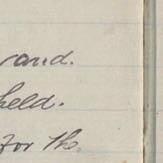 rand.
held.
for the